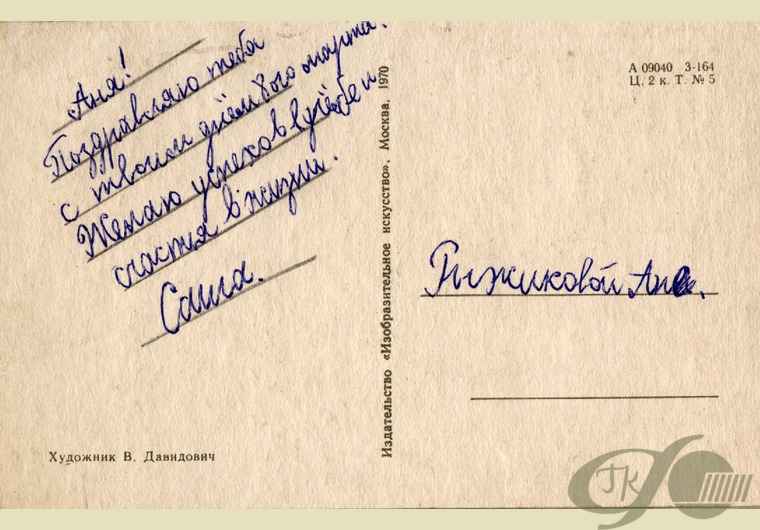 Аня!
Поздравляю тебя
с твоим днём 8ого марта.
Желаю успехов в учёбе и
счастья в жизни.
Саша.
Художник В. Давидович
Издательство «Изобразительное искусство». Москва. 1970
А 09040 3-164
Ц. 2 к. Т. № 5
Рыжиковой Ане.
ГК